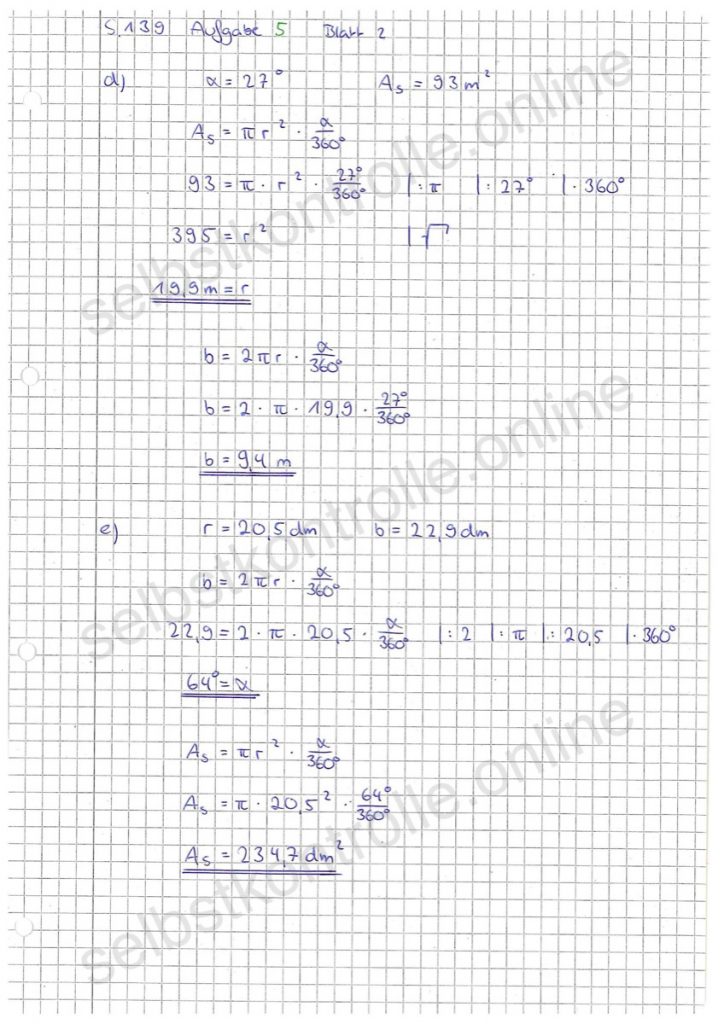 S.139 Aufgabe 5 Blatt 2
d) α = 27° As = 93 m²
As = π r² · α/360°
93 = π · r² · 27°/360° |: π |: 27° |· 360°
395 = r² |√
19,9 m = r
b = 2 π r · α/360°
b = 2 · π · 19,9 · 27°/360°
b = 9,4 m
e) r = 20,5 dm b = 22,9 dm
b = 2 π r · α/360°
22,9 = 2 · π · 20,5 · α/360° |: 2 |: π |: 20,5 |· 360°
64° = α
As = π r² · α/360°
As = π · 20,5² · 64°/360°
As = 234,7 dm²
selbstkontrolle.online
selbstkontrolle.online
selbstkontrolle.online